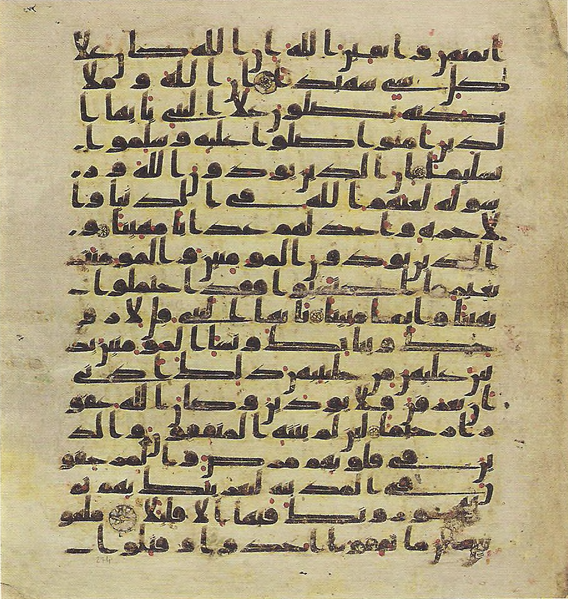 ايمنهن و اتقين الله ان الله كان علا
كل شي شهيدا ان الله و ملا
ئكته يصلون علا النبي يايها ا
لذين امنوا صلوا عليه وسلموا
تسليما ان الذين يوذون الله و ر
سوله لعنهم الله في الدنيا وا
لاخره واعد لهم عذابا مهينا و
الذين يوذون المومنين والمومنت
بغير ما اكتسبوا فقد احتملوا
بهتنا واثما مبينا يايها النبي قل لازو
جك وبناتك ونسا المومنين يد
نين عليهن من جلبيبهن ذلك ادني
ان يعرفن فلا يوذين وكان الله غفو
را رحيما لئن لم ينته المنفقون والذ
ين في قلوبهم مرض والمرجفو
ن في المدينه لنغرينك بهم ثم
لا يجاورونك فيها الا قليلا ملعو
نين اينما ثقفوا اخذوا وقتلوا